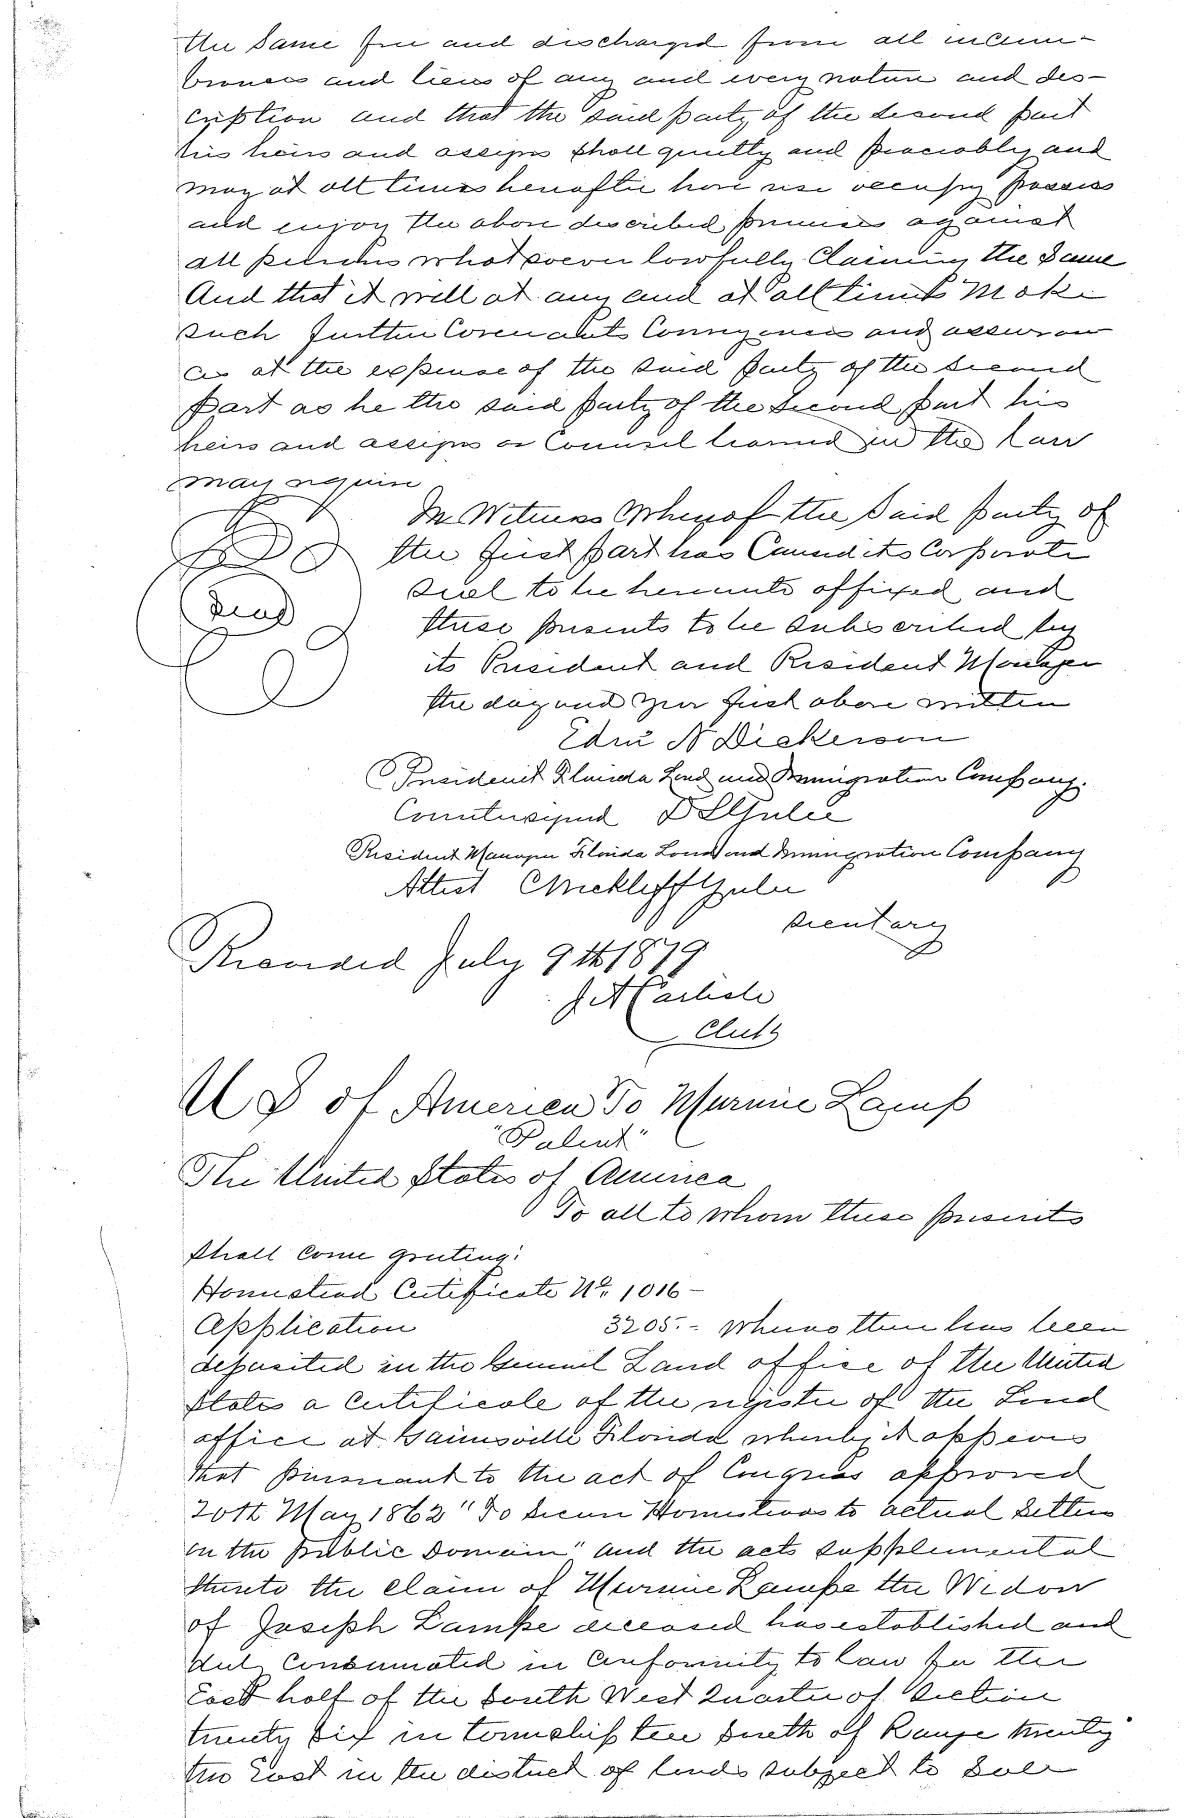 the same free and discharged from all incum-
brances and liens of any and every nature and des-
cription and that the said party of the second part
his heirs and assigns shall quietly and peaceably and
may at all times hereafter have use occupy possess
and enjoy the above described premises against
all persons whatsoever lawfully claiming the same
And that it will at any and at all times make
such further Covenants Conveyances and assuran
ces at the expense of the said party of the second
part as he the said party of the second part his
heirs and assigns or Counsel learned in the law
may require
In Witness Whereof the said party of
the first part has Caused its Corporate
seal to be hereunto affixed and
Seal
these presents to be subscribed by
its President and Resident Manager
the day and year first above written
Edw N Dickerson
President Florida Land and Immigration Company.
Countersigned D L Yulee
Resident Manager Florida Land and Immigration Company
Attest C Wickliff Yulee
secretary
Recorded July 9th 1879
J A Carlisle
Clerk
U S of America To Lamp
"Patent"
The United States of America
To all to whom these presents
shall come greeting:
Homestead Certificate No. 1016 -
Application 3205. - Whereas there has been
deposited in the General Land office of the United
States a Certificate of the register of the Land
office at Gainesville Florida whereby it appears
that pursuant to the act of Congress approved
20th May 1862 "To secure Homesteads to actual Settlers
on the public Domain" and the acts supplemental
thereto the claim of Lampe the Widow
of Joseph Lampe deceased has established and
duly Consumated in Conformity to law for the
East half of the South West Quarter of Section
twenty six in township ten South of Range twenty
two East in the district of lands subject to Sale